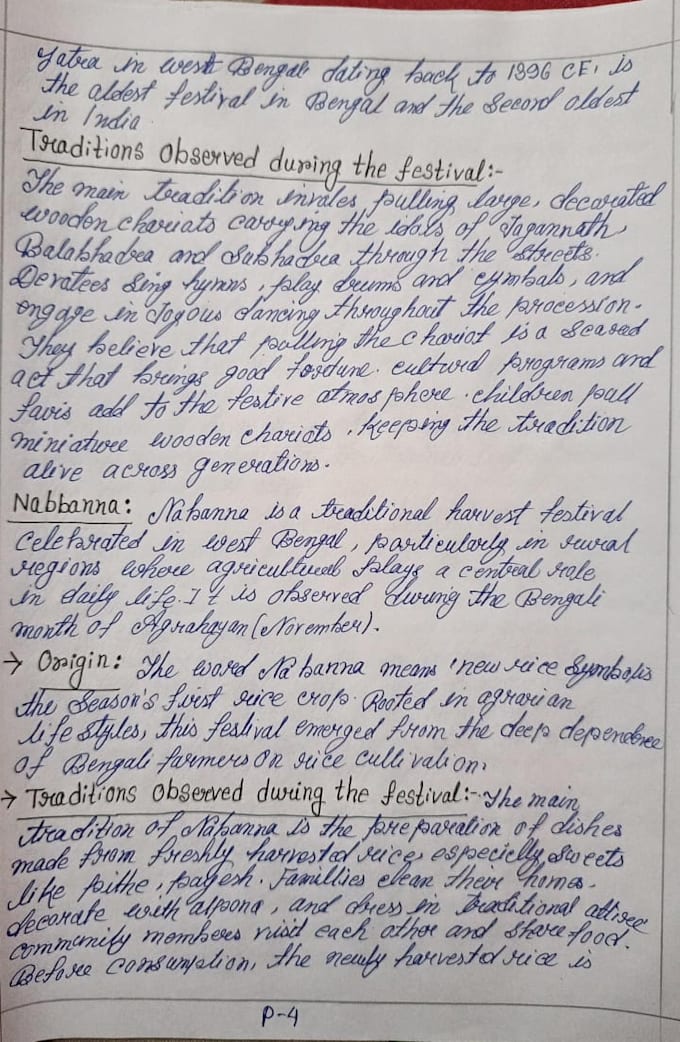 Yatra in west Bengal dating back to 1396 CE, is
the oldest festival in Bengal and the second oldest
in India.
Traditions Observed during the festival:-
The main tradition involes pulling large, decorated
wooden chariots carrying the idols of Jagannath,
Balabhadra and Subhadra through the streets.
Devotees sing hymns, play drums and cymbals, and
engage in Joyous dancing throughout the procession.
They believe that pulling the chariot is a scared
act that brings good fordune. cultural programs and
favis add to the festive atmosphere. children pull
miniature wooden chariots, keeping the tradition
alive across generations.
Nabbanna: Nabanna is a traditional harvest festival
celebrated in west Bengal, particularly in rural
regions where agricultural plays a central role
in daily life. It is observed during the Bengali
month of Agrahayan (November).
→ Origin: The word Nabanna means 'new rice Symbolis
the season's first rice crop. Rooted in agrarian
life styles, this festival emerged from the deep dependence
of Bengali farmers on rice cultivation.
→ Traditions Observed during the festival:- The main
tradition of Nabanna is the preparation of dishes
made from freshly harvested rice, especielly sweets
like pithe, payesh. Families clean their homes.
decorate with alpona, and dress in traditional attire
community members visit each other and share food.
Before consumption, the newly harvested rice is
P-4